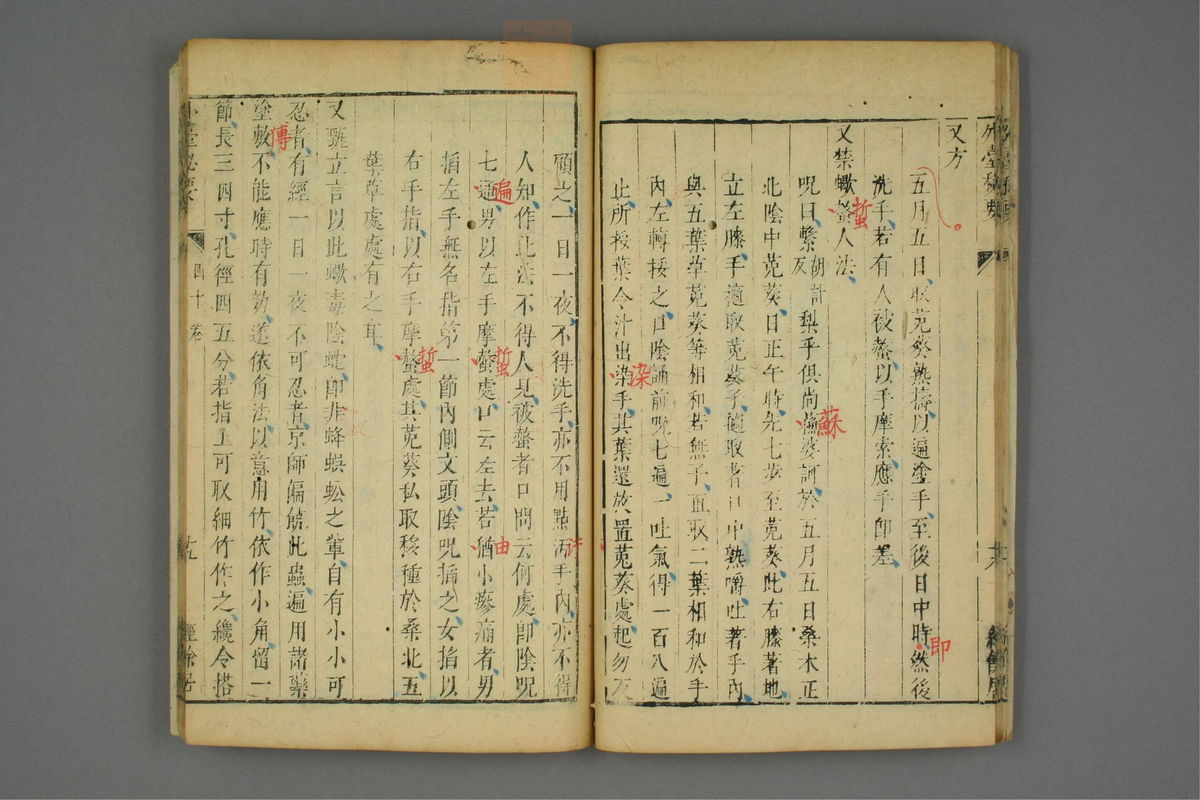 外臺秘要
又方
五月五日取莧葵熟擣以遍塗手至後日中時然後
即
洗手若有人被螫以手摩索應手即差
又禁蠍螫人法
蜇
呪曰繫胡計反梨乎俱尚撫婆訶於五月五日桑木正
蘇
北陰中莧葵日正午時先七步至莧葵此右膝著地
立左膝手摘取莧葵子摘取著口中熟嚼吐著手內
與五葉草莧葵等相和若無子直取二葉相和於手
內左轉挼之口陰誦前呪七遍一吐氣得一百八遍
止所挼葉令汁出染手其葉還放置莧葵處起勿反
染
顧之一日一夜不得洗手亦不用點汚手內亦不得
汙
人知作此法不得人見被螫者口問云何處即陰呪
七通男以左手摩螫處口云左去若猶小疼痛者男
遍
蜇
由
搯左手無名指第一節內側文頭陰呪搯之女搯以
右手指以右手摩螫處其莧葵私取移種於桑北五
蜇
葉草處處有之耳
又甄立言以此蠍毒陰蛇即非蜂蜈蚣之輩自有小小可
忍者有經一日一夜不可忍者京師偏饒此蟲遍用諸藥
塗敷不能應時有効遂依角法以意用竹依作小角留一
傅
節長三四寸孔徑四五分若指上可取細竹作之纔令搭
四十卷
經餘居